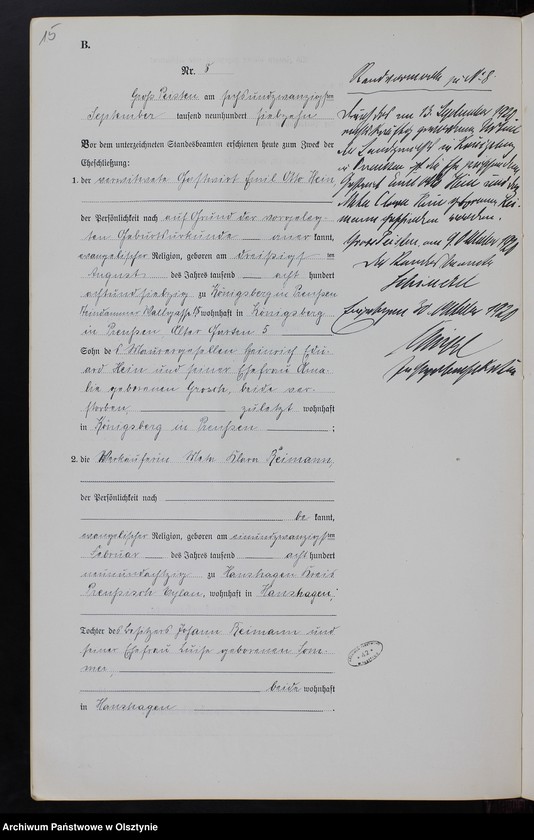 15
B.
Nr. 8
Groß Peisten am sechsundzwanzigsten
September tausend neunhundert siebzehn
Vor dem unterzeichneten Standesbeamten erschienen heute zum Zweck der
Eheschließung:
1. der verwitwete Gastwirt Emil Otto Hein
der Persönlichkeit nach auf Grund der vorgeleg-
ten Geburtsurkunde aner kannt,
evangelischer Religion, geboren am dreißigsten
August des Jahres tausend acht hundert
achtundsiebzig zu Königsberg in Preußen
wohnhaft in Königsberg
in Preußen, Alter Garten 5
Sohn des Maurergesellen Heinrich Edu-
ard Hein und seiner Ehefrau Ama-
lie geborenen Grosch, beide ver-
storben, zuletzt wohnhaft
in Königsberg in Preußen ;
2. die Verkäuferin Meta Klara Reimann,
der Persönlichkeit nach
be kannt,
evangelischer Religion, geboren am einundzwanzigsten
Februar des Jahres tausend acht hundert
neunundachtzig zu Hanshagen Kreis
Preußisch Eylau, wohnhaft in Hanshagen,
Tochter des Besitzers Johann Reimann und
seiner Ehefrau Luise geborenen Som-
mer,
beide wohnhaft
in Hanshagen .
Randvermerk zu Nr. 8.
Durch das am 13. September 1920
rechtskräftig gewordene Urteil
des Landgerichts in Königsberg
in Preußen ist die Ehe zwischen dem
Gastwirt Emil Otto Hein und der
Meta Klara Hein geborenen Rei-
mann geschieden worden.
Gross Peisten, am 9. Oktober 1920
Der Standesbeamte
20. Oktober 1920
Archiwum Państwowe w Olsztynie